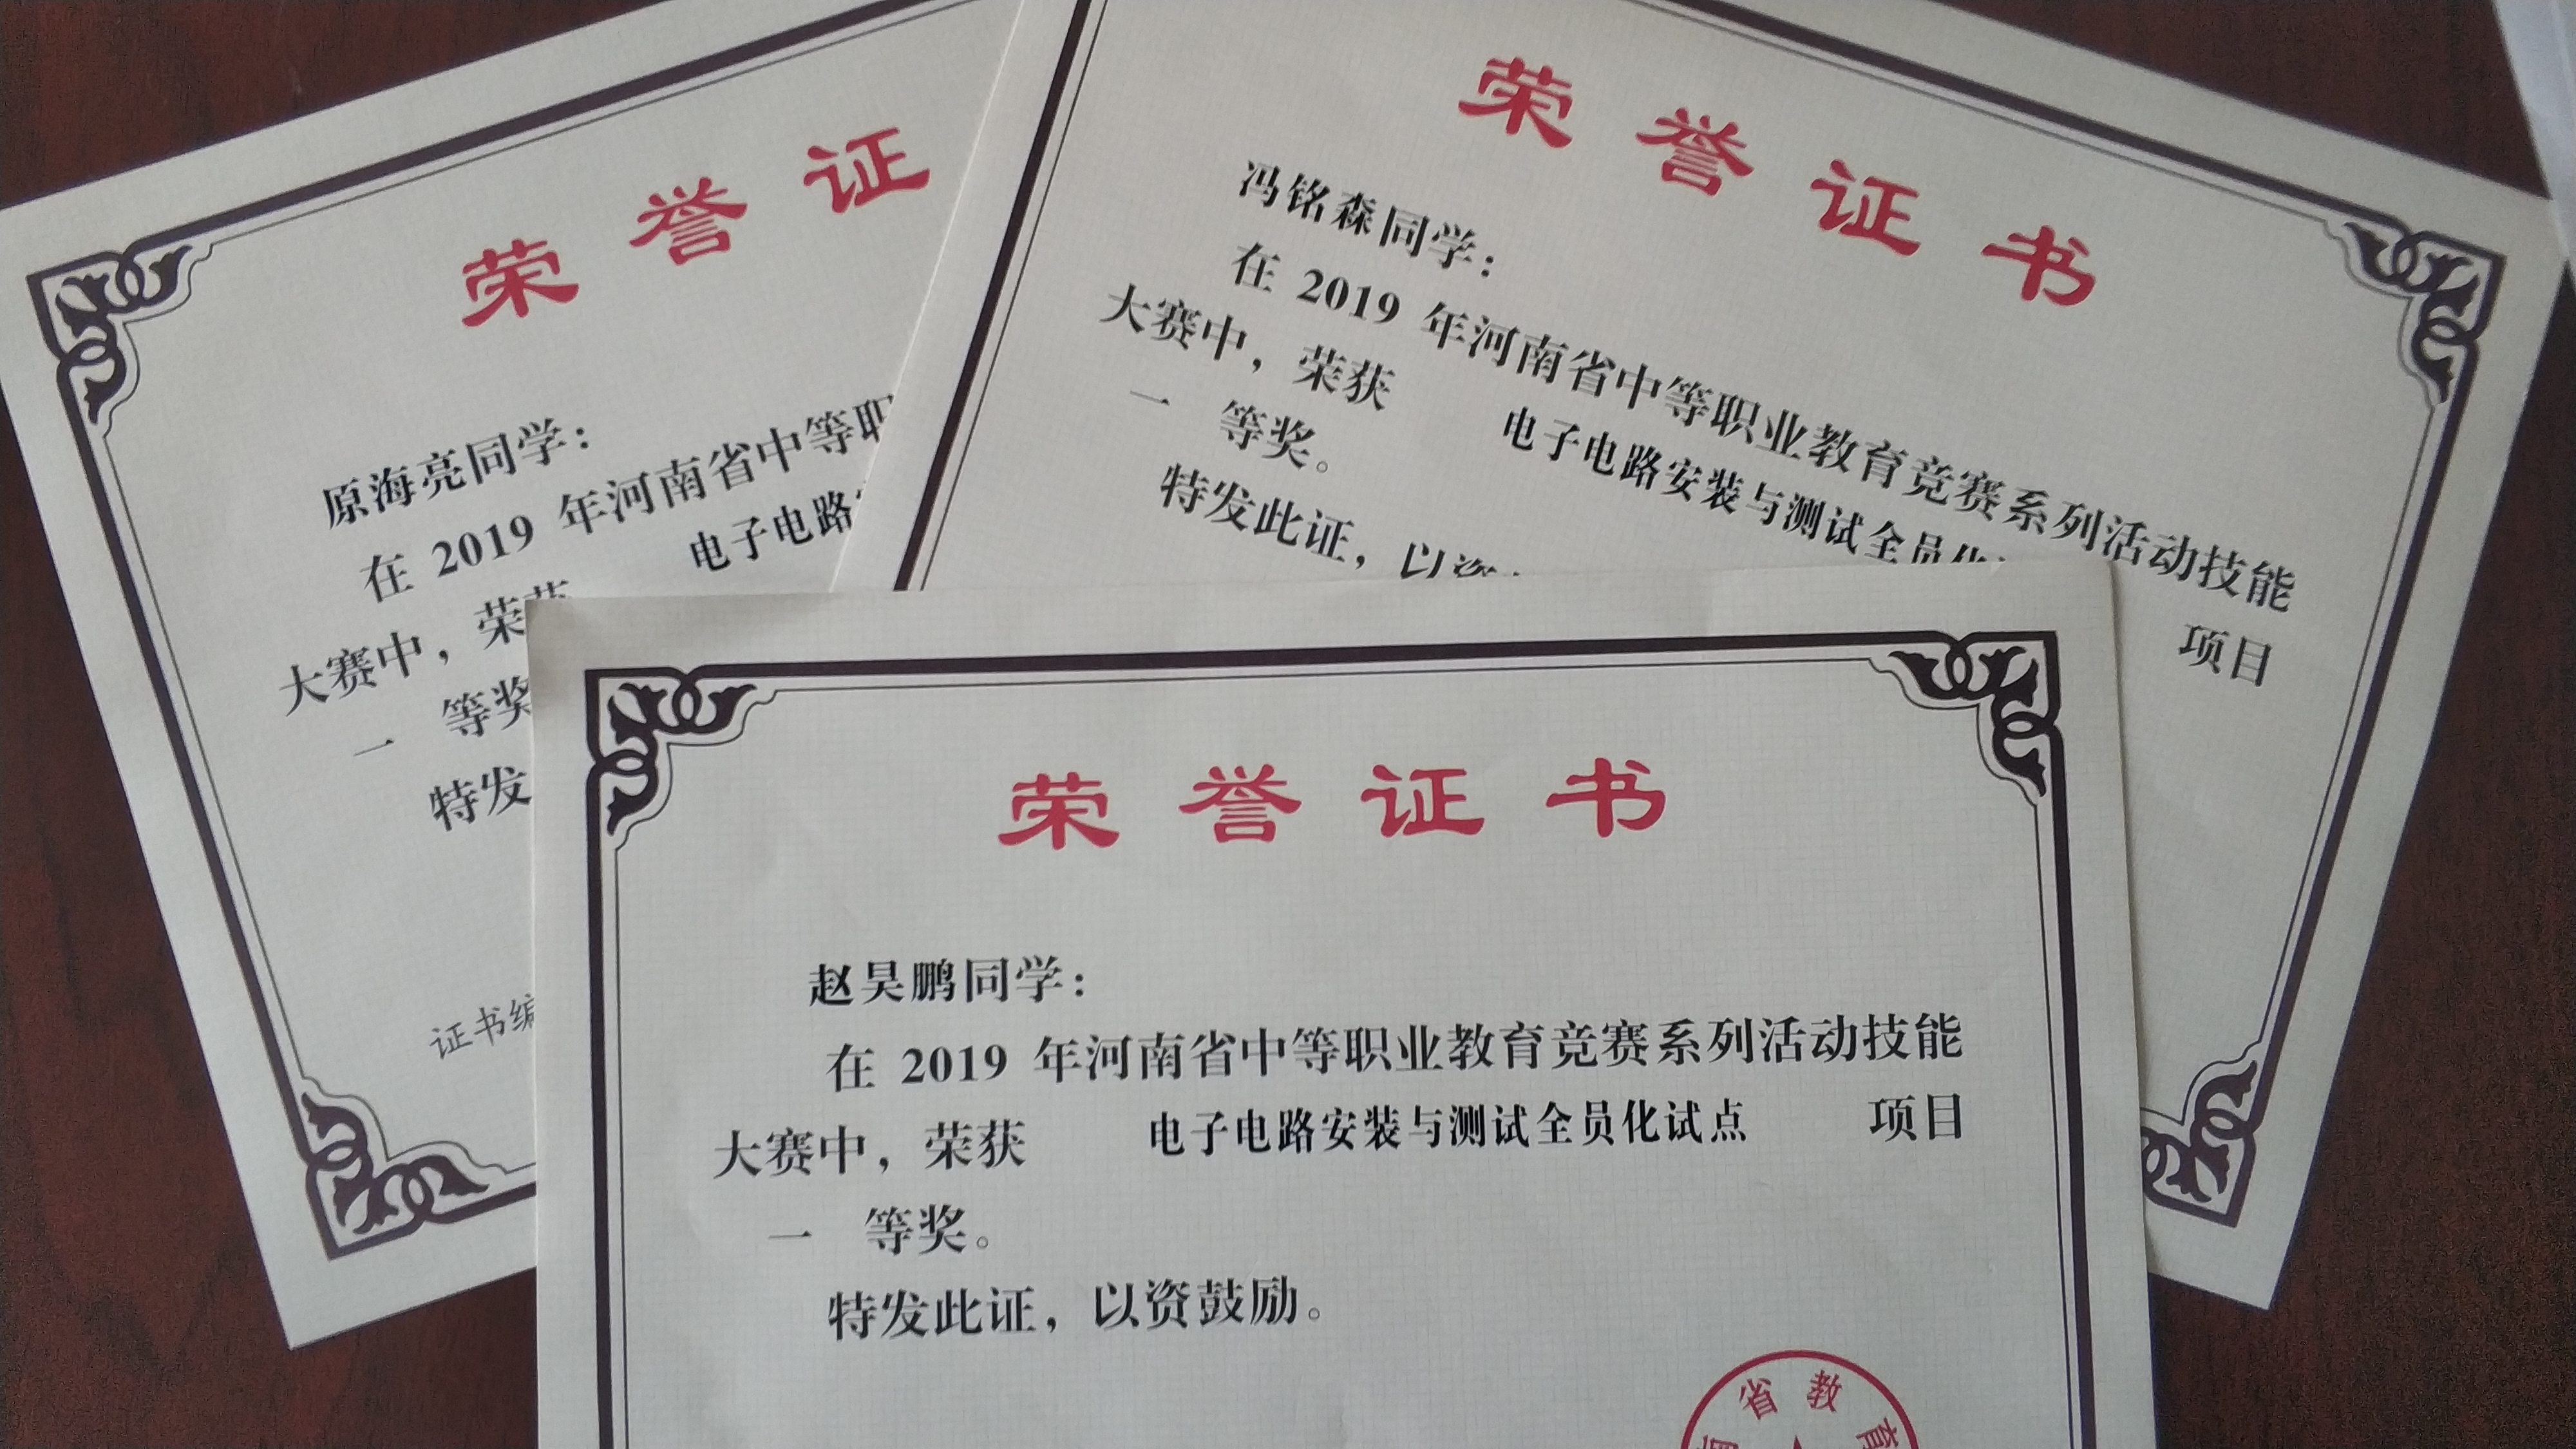 荣誉证
原海亮同学：
在 2019 年河南省中等职
大赛中，荣获
电子电路
一 等奖
特发
证书编
荣誉证书
冯铭森同学：
在 2019 年河南省中等职业教育竞赛系列活动技能
大赛中，荣获 电子电路安装与测试全员化 项目
一 等奖。
特发此证，以资
荣誉证书
赵昊鹏同学：
在 2019 年河南省中等职业教育竞赛系列活动技能
大赛中，荣获 电子电路安装与测试全员化试点 项目
一 等奖。
特发此证，以资鼓励。
省教育